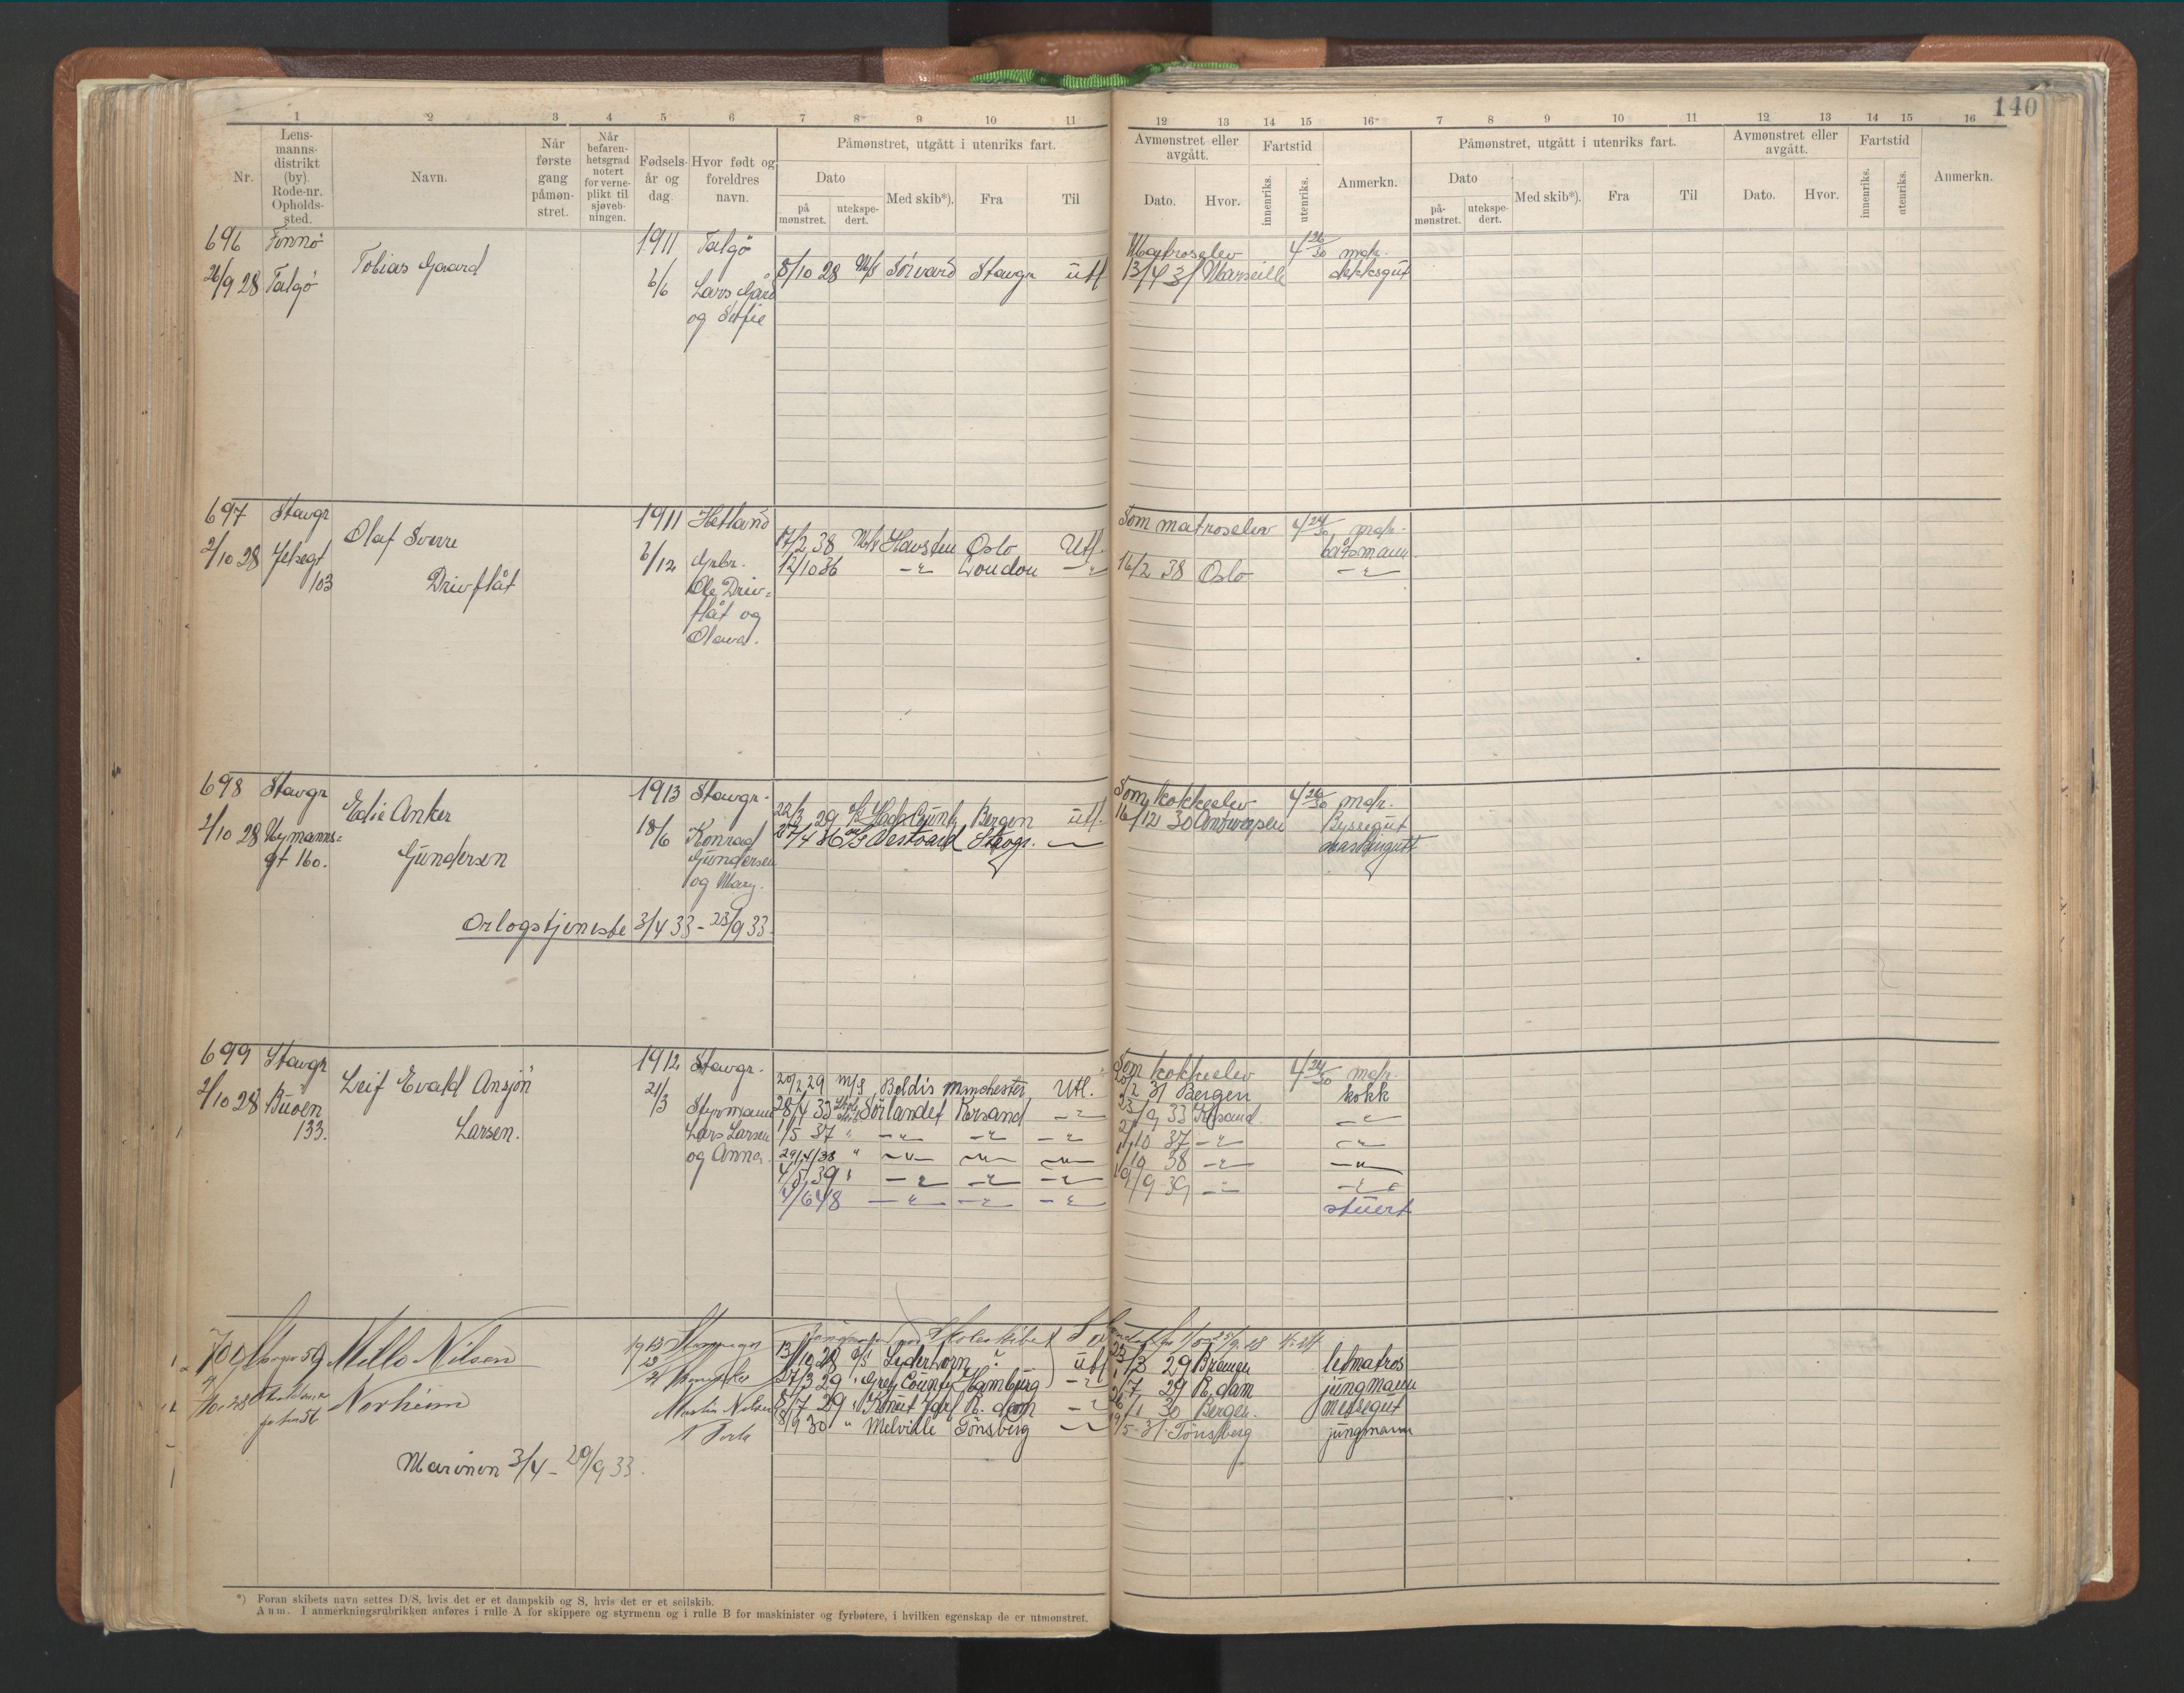 140
1 2 3 4 5 6 7 8 9 10 11
12 13 14 15 16 7 8 9 10 11 12 13 14 15 16
Nr.
Lens-
manns-
distrikt
(by).
Rode-nr.
Opholds-
sted.
Navn.
Når
første
gang
påmøn-
stret.
Når
befaren-
hetsgrad
notert
for verne-
plikt til
sjøveb-
ningen.
Fødsels-
år og
dag.
Hvor født og
foreldres
navn.
Påmønstret, utgått i utenriks fart.
Dato
på
mønstret.
utekspe-
dert.
Med skib*).
Fra
Til
Avmønstret eller
avgått.
Dato.
Hvor.
Fartstid
innenriks.
utenriks.
Anmerkn.
Påmønstret, utgått i utenriks fart.
Dato
på-
mønstret.
utekspe-
dert.
Med skib*).
Fra
Til
Avmønstret eller
avgått.
Dato.
Hvor.
Fartstid
innenriks.
utenriks.
Anmerkn.
696 Finnø 1911 Talgö Matroselev 4 26/30 mdr.
26/9 28 Talgö Tobias Gaard 6/6 Lars Gård 8/10 28 M/S Sörvard Stavgr utl 13/4 31 Marseille dekksgut
og Sofie
697 Stavgr 1911 Hetland Som matroselev 4 24/30 mdr.
Olaf Sverre 17/2 38 M/S Havsten Oslo Utl. båtsmann
2/10 28 Jelsegt 6/12 Grbr. 12/10 36 -"- London -"- 16/2 38 Oslo -"-
103 Drivflåt Ole Driv-
flåt og
Olava.
698 Stavgr 1913 Stavgr. Som kokkelev 4 26/30 mdr.
Edie Anker 29 Bergen utl. 16/12 30 Antwerpen Byssegut
2/10 28 Nymanns- 18/6 Konrad 27/4 36 M/S Vestvard Stavgr.
gt 160. Gundersen Gundersen
og Mary.
Orlogstjeneste 3/4 33 - 23/9 33.
699 Stavgr 1912 Stavgr. Som kokkelev 4 24/30 mdr.
Leif Evald Ansjön 20/2 29 M/S Boldis Manchester Utl. 31 Bergen kokk
2/10 28 Buøen 21/3 Styrmann 28/4 33 Sørlandet Krsand -"- 23/9 33 Krsand. -"-
133. Larsen. Lars Larsen 1/5 37 " -"- -"- -"- 10 37 -"- -"-
og Anna. 29/4 38 " -"- -"- -"- 38 -"- -"-
4/5 39 " -"- -"- -"- 19/9 39 -"- -"-
4/6 48 -"- -"- -"- stuert
700 Mello Nilsen 1913
13/10 28 Lyderhorn ? utl 29 Bremen letmatros
27/3 29 " Grey County Hamburg -"- 7 29 R.dam jungmann
Norheim Martin Nilsen 8/7 29 " Knut Jarl R.dam -"- 30 Bergen. messegut
30 " Melville Tönsberg -"- 19/5 31 Tönsberg jungmann
Marinen 3/4 - 29/9 33.
*) Foran skibets navn settes D/S, hvis det er et dampskib og S, hvis det er et seilskib.
Anm. I anmerkningsrubrikken anføres i rulle A for skippere og styrmenn og i rulle B for maskinister og fyrbøtere, i hvilken egenskap de er utmønstret.